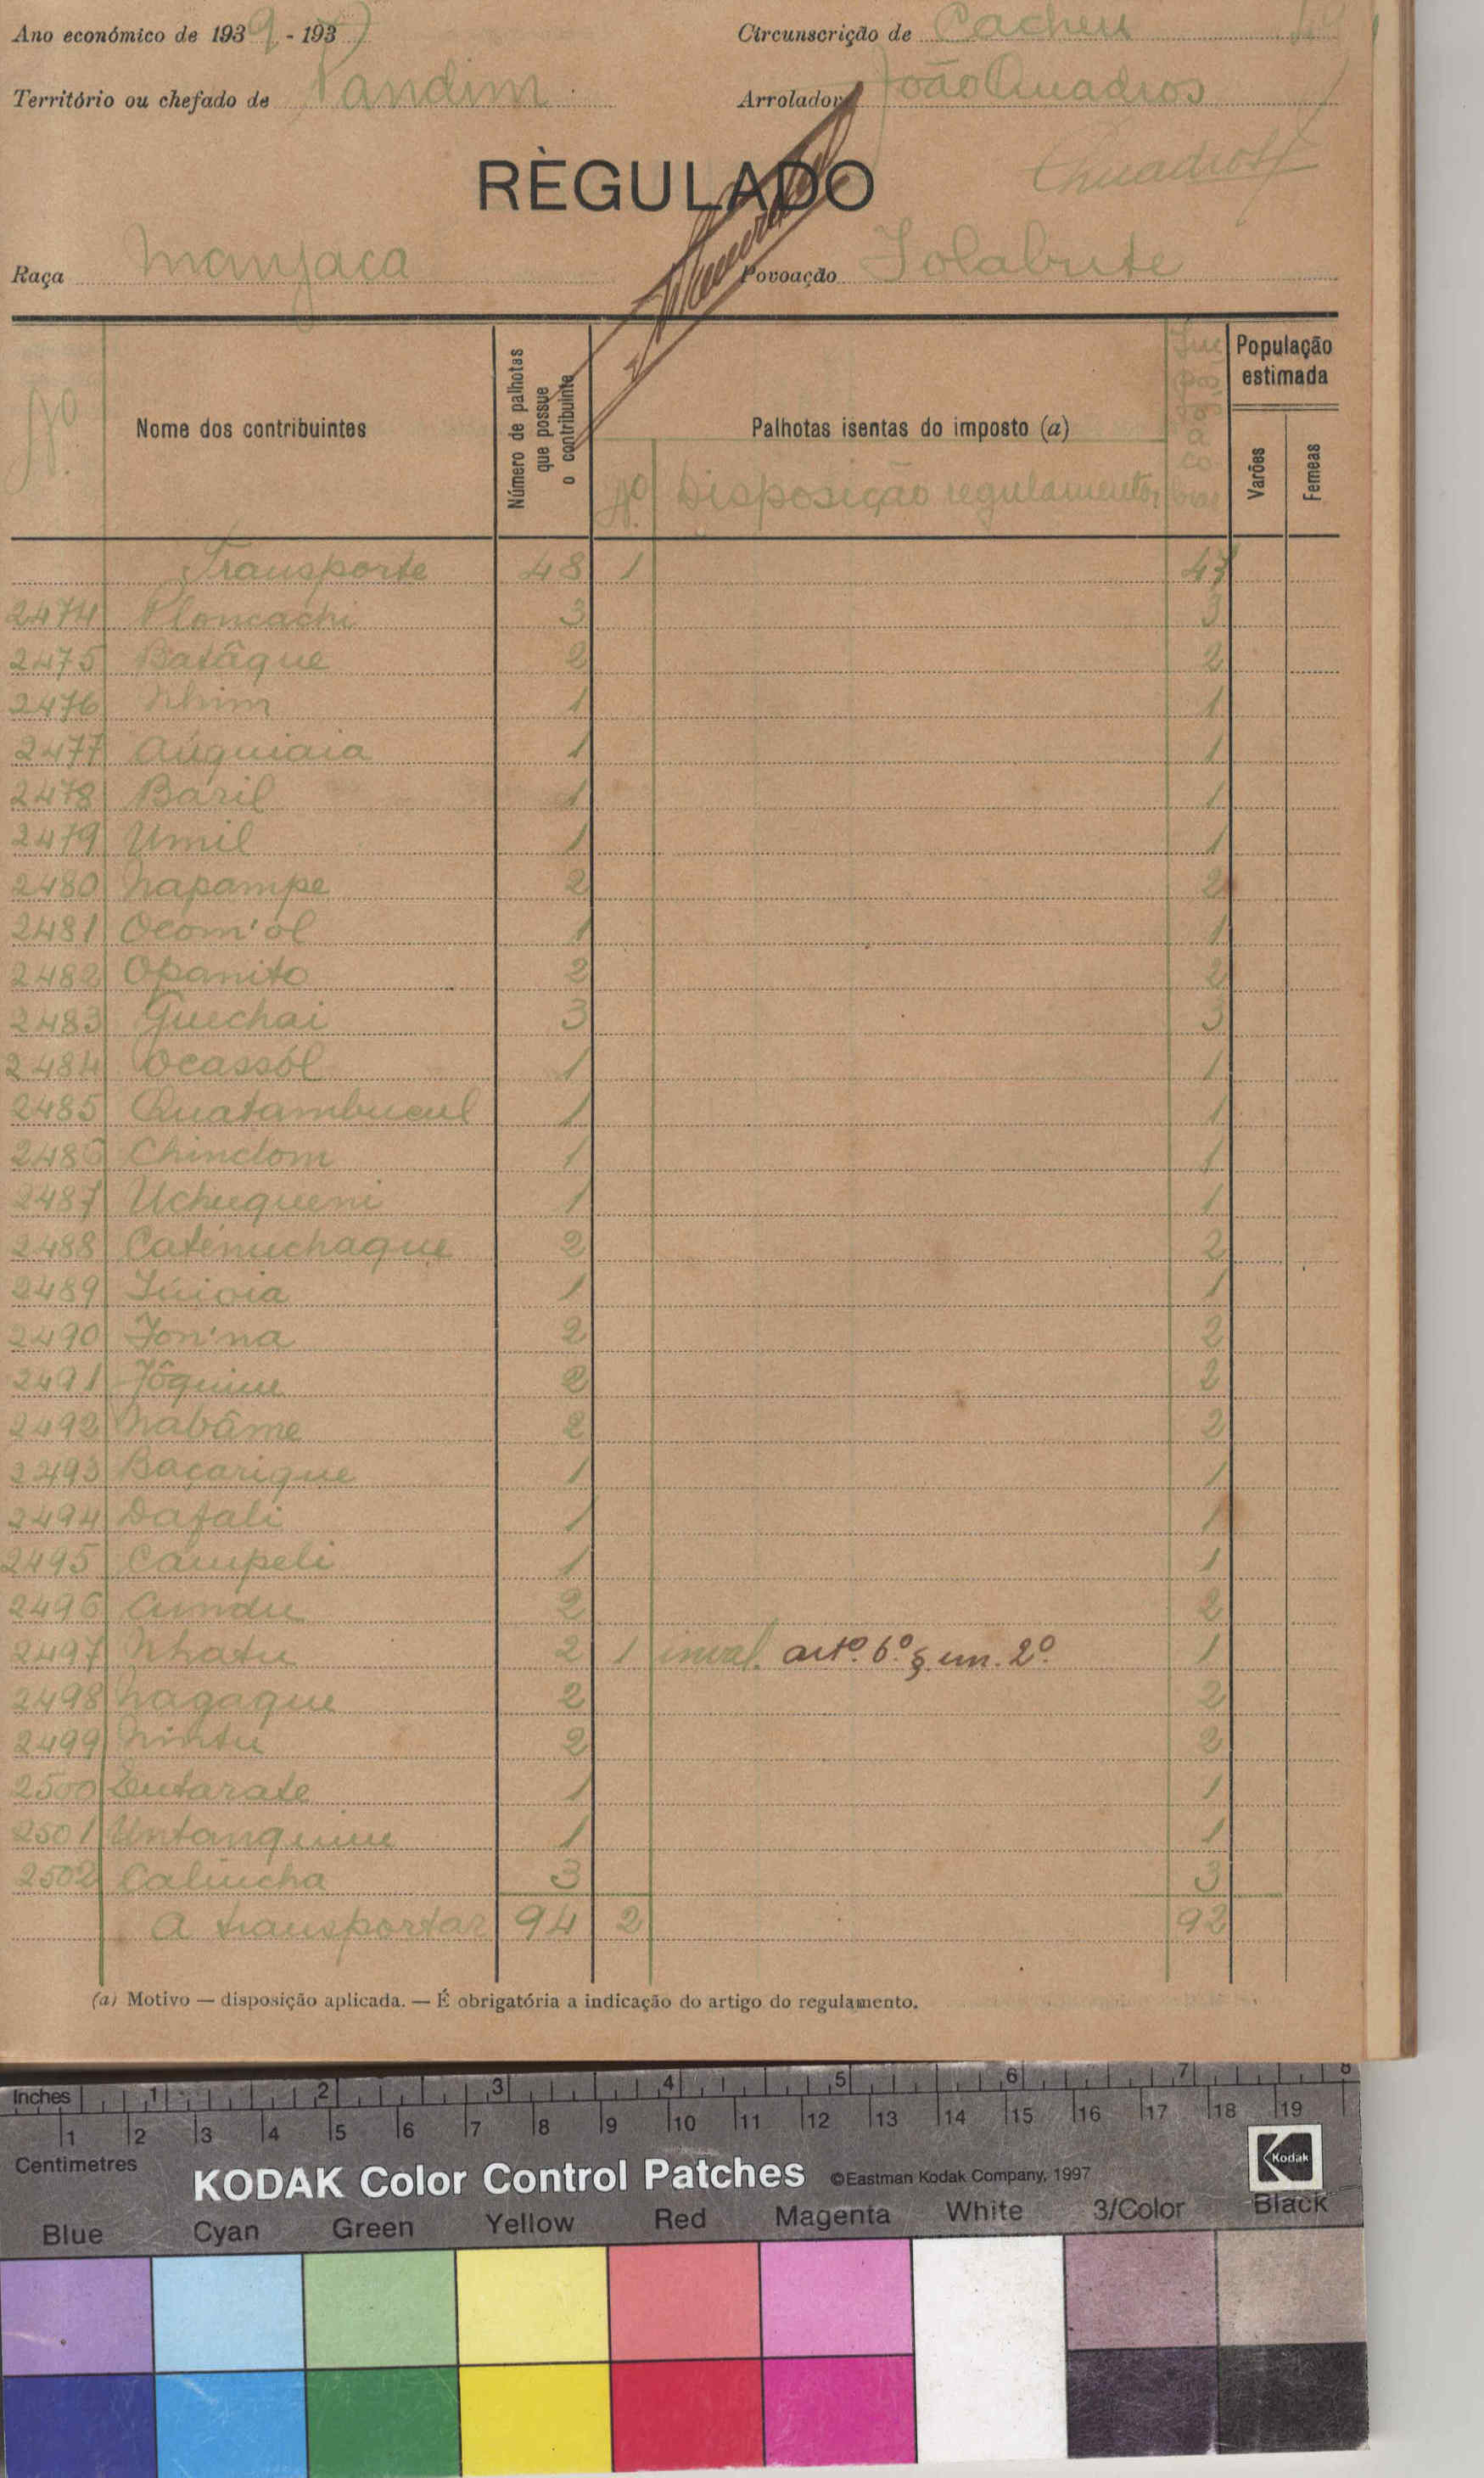 Ano económico de 1939 - 193
Circunscrição de Cacheu
Território ou chefado de Pandim
Arrolador João Quadros
Quadros
RÈGULADO
Raça Manjaca
Povoação Jolabute
Nº.
Nome dos contribuintes
Número de palhotas que possue o contribuinte
Palhotas isentas do imposto (a)
Nº. Disposição regulamentar
Impostos a cobrar
População estimada
Varões
Femeas
Transporte 48 1 47
2474 Ploncachi 3 3
2475 Batâque 2 2
2476 Nhim 1 1
2477 Aúquiaia 1 1
2478 Baril 1 1
2479 Umil 1 1
2480 Napampe 2 2
2481 Ocom'ol 1 1
2482 Opanito 2 2
2483 Guechai 3 3
2484 Ocassól 1 1
2485 Quatambucul 1 1
2486 Chindom 1 1
2487 Uchuqueni 1 1
2488 Catenuchaque 2 2
2489 Júioia 1 1
2490 Jon'na 2 2
2491 Jôquim 2 2
2492 Nabâme 2 2
2493 Baçarique 1 1
2494 Dafali 1 1
2495 Campeli 1 1
2496 Cundu 2 2
2497 Nhatu 2 1 inval. artº. 6º. § un. 2º. 1
2498 Nagaque 2 2
2499 Nintu 2 2
2500 Entarate 1 1
2501 Untanquim 1 1
2502 Caluicha 3 3
A transportar 94 2 92
(a) Motivo — disposição aplicada. — É obrigatória a indicação do artigo do regulamento.
Inches 1 2 3 4 5 6 7 8
1 2 3 4 5 6 7 8 9 10 11 12 13 14 15 16 17 18 19
Centimetres
KODAK Color Control Patches ©Eastman Kodak Company, 1997 Kodak
Blue Cyan Green Yellow Red Magenta White 3/Color Black